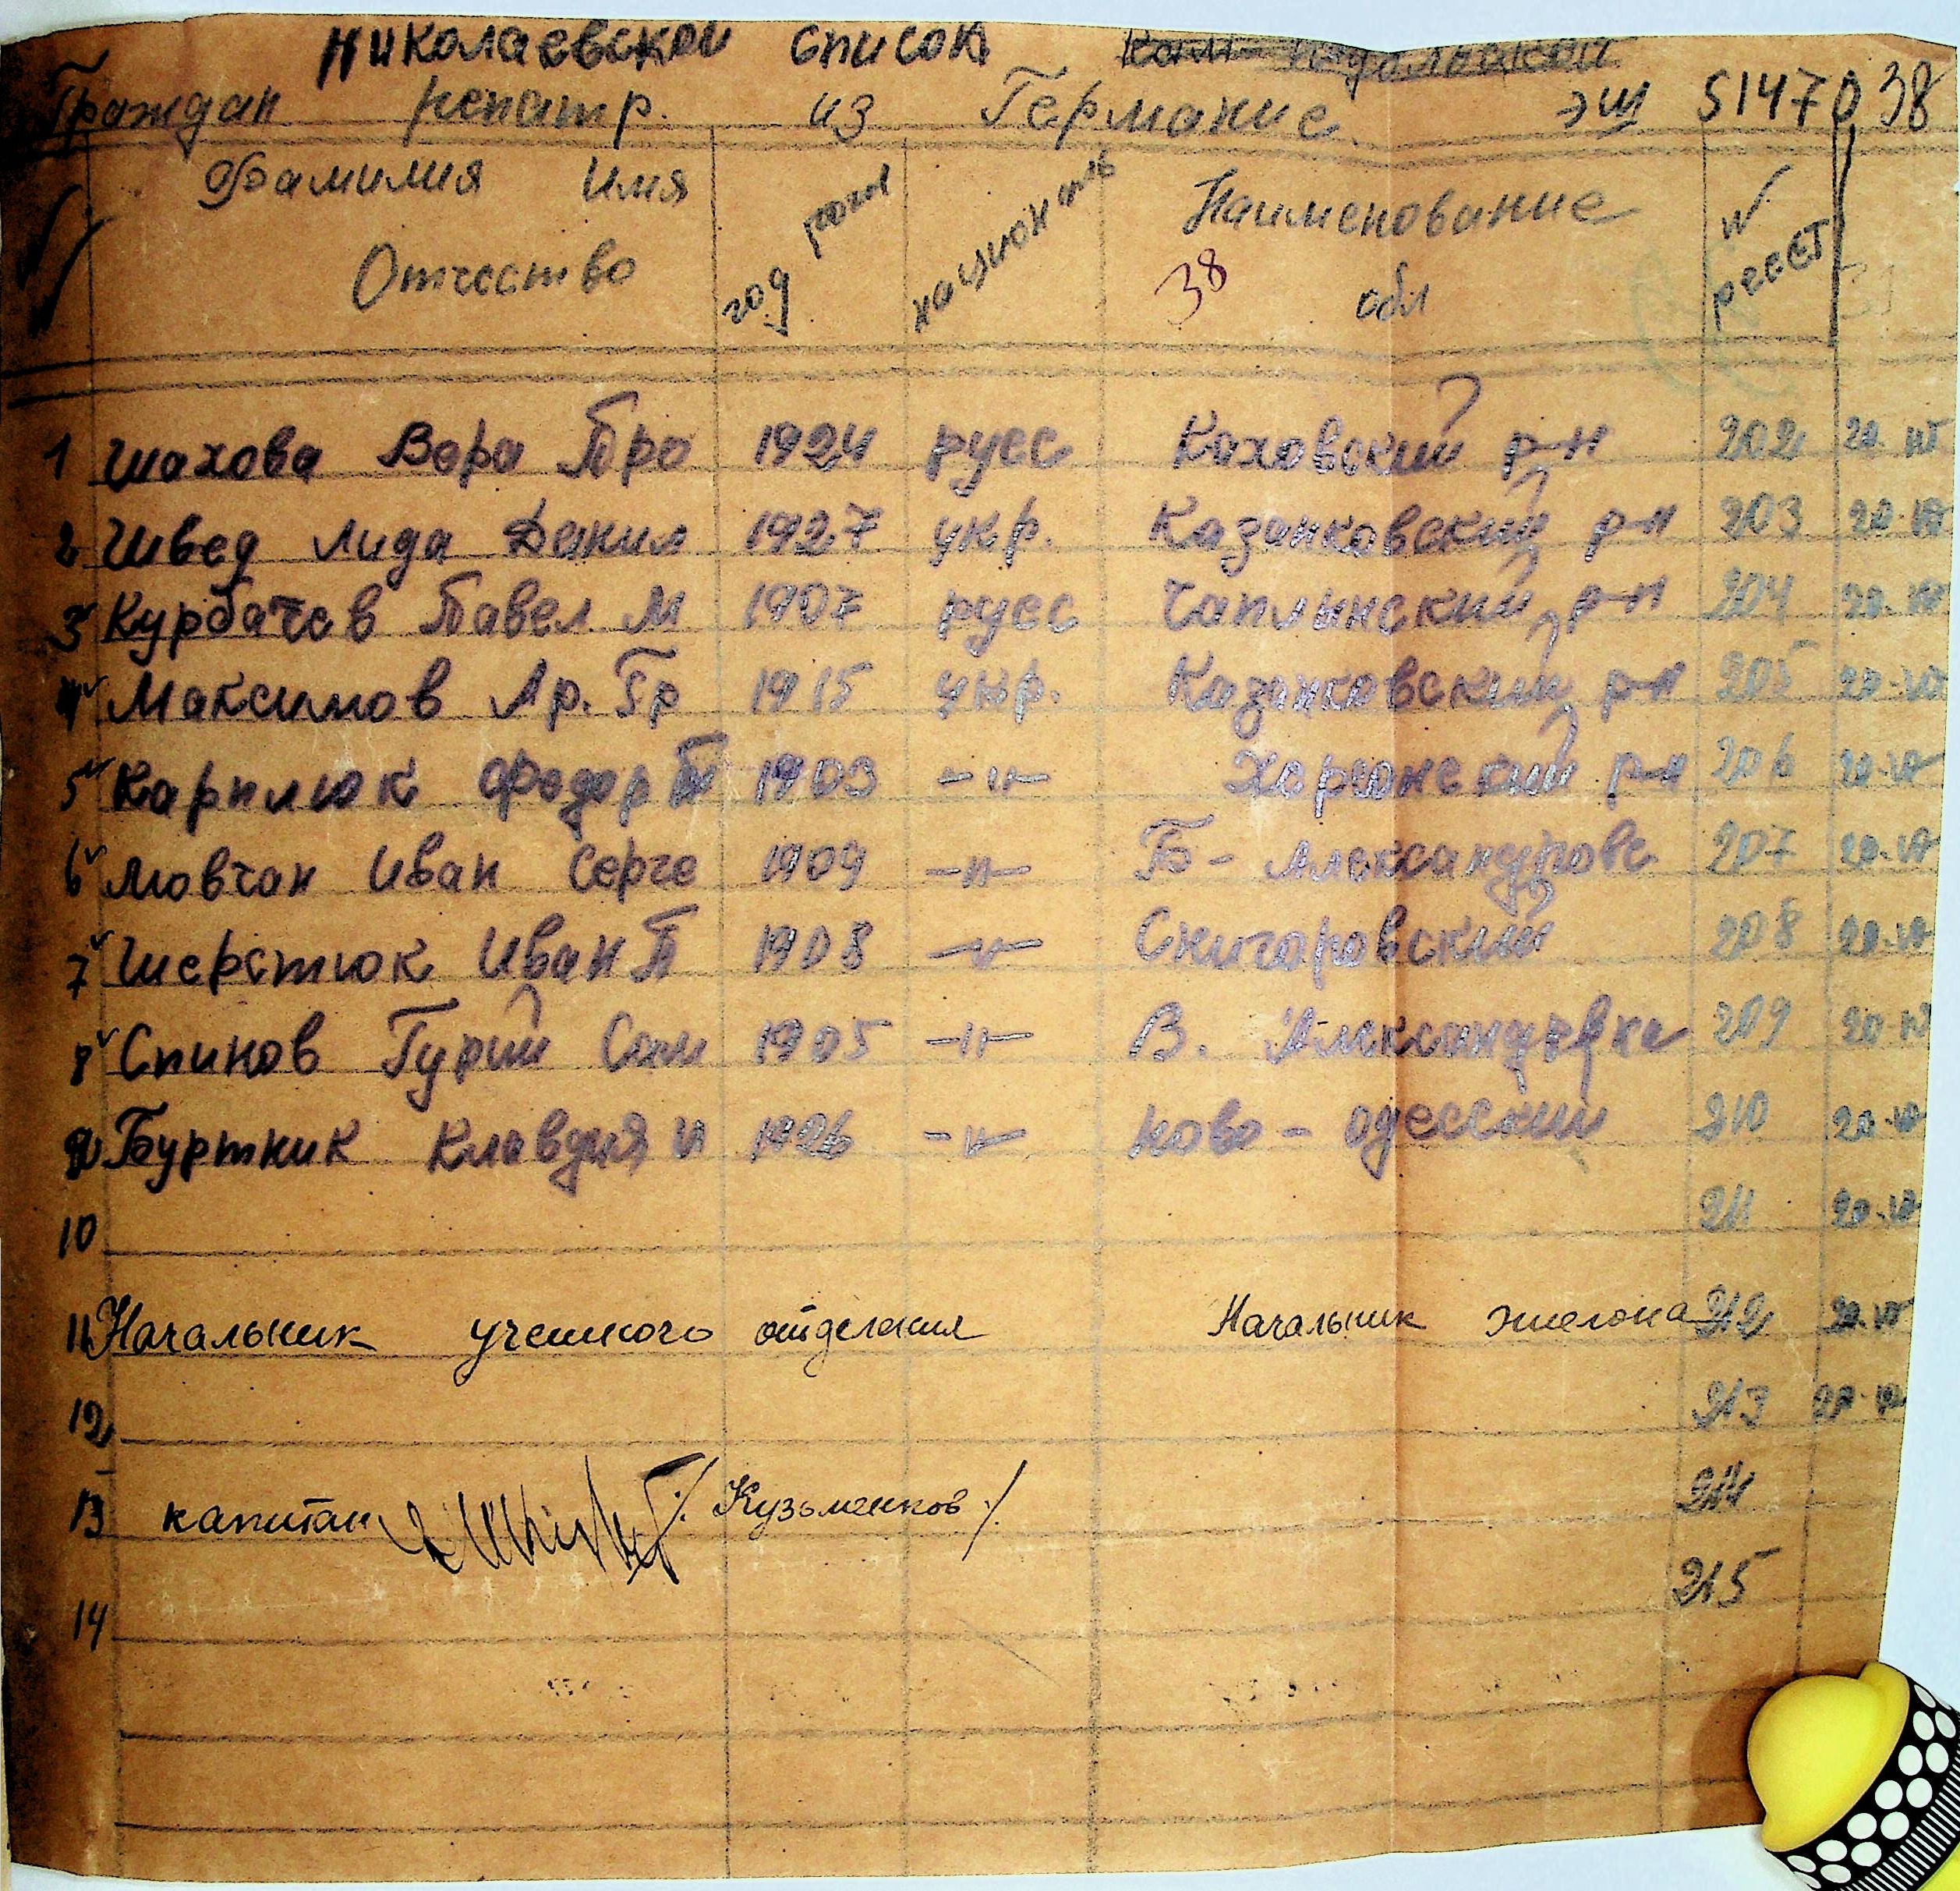 Николаевской список
Граждан репатр. из Германие эш 51470 38
Фамилия Имя Отчество год рожд национ ть Наименование 38 обл № реест
1 Шахова Вера Про 1924 русс Каховский р-н 202 20.VI
2 Швед Лида Данил 1927 укр. Казанковский р-н 203 20.VI
3 Курбачев Павел М 1907 русс Чаплынский р-н 204 20.VI
4 Максимов Ар. Гр 1915 укр. Казанковский р-н 205 20.VI
5 Карплюк Федор П 1903 -"- Херсонский р-н 206 20.VI
6 Мовчан Иван Серге 1909 -"- Б-Александровс 207 20.VI
7 Шерстюк Иван П 1908 -"- Снигоровский 208 20.VI
8 Спинов Гурий Сам 1905 -"- В. Александровка 209 20.VI
9 Буртник Клавдия И 1926 -"- Ново-одесский 210 20.VI
10 211 20.VI
11 Начальник учетного отделения Начальник эшелона 212 20.VI
12 213 20.VI
13 капитан /Кузьменков/ 214
14 215